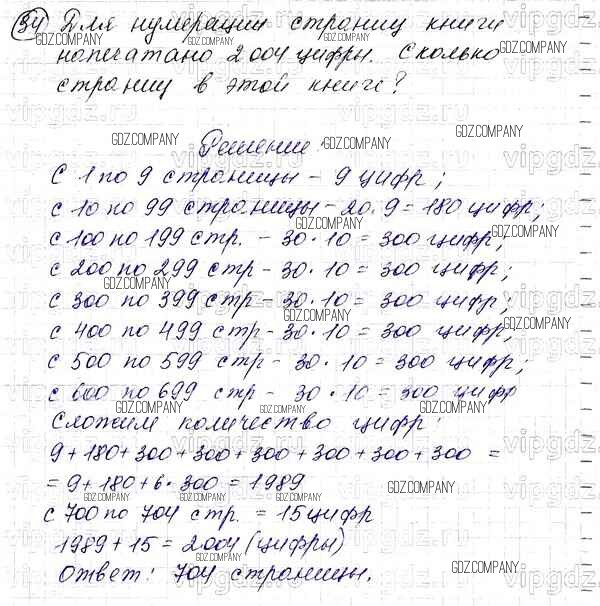 34 Для нумерации страниц книги
напечатано 2 004 цифры. Сколько
страниц в этой книге?
Решение:
С 1 по 9 страницы – 9 цифр;
с 10 по 99 страницы – 20 · 9 = 180 цифр;
с 100 по 199 стр. – 30 · 10 = 300 цифр;
с 200 по 299 стр – 30 · 10 = 300 цифр;
с 300 по 399 стр – 30 · 10 = 300 цифр;
с 400 по 499 стр – 30 · 10 = 300 цифр;
с 500 по 599 стр – 30 · 10 = 300 цифр;
с 600 по 699 стр – 30 · 10 = 300 цифр
Сложим количество цифр:
9 + 180 + 300 + 300 + 300 + 300 + 300 + 300 =
= 9 + 180 + 6 · 300 = 1989
с 700 по 704 стр. = 15 цифр
1989 + 15 = 2004 (цифры)
Ответ: 704 страницы.
GDZ.COMPANY
vipgdz.ru